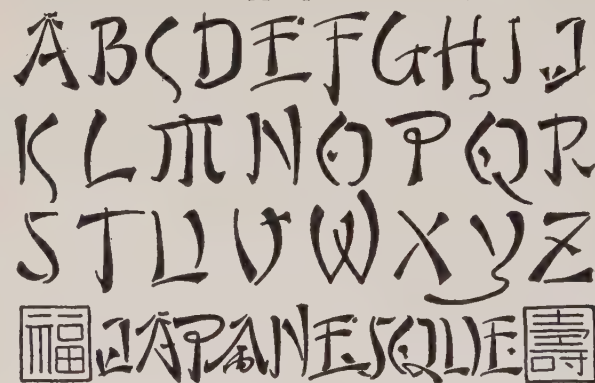 ABCDEFGHIJ
KLMNOPQR
STUVWXYZ
福 JAPANESQUE 壽